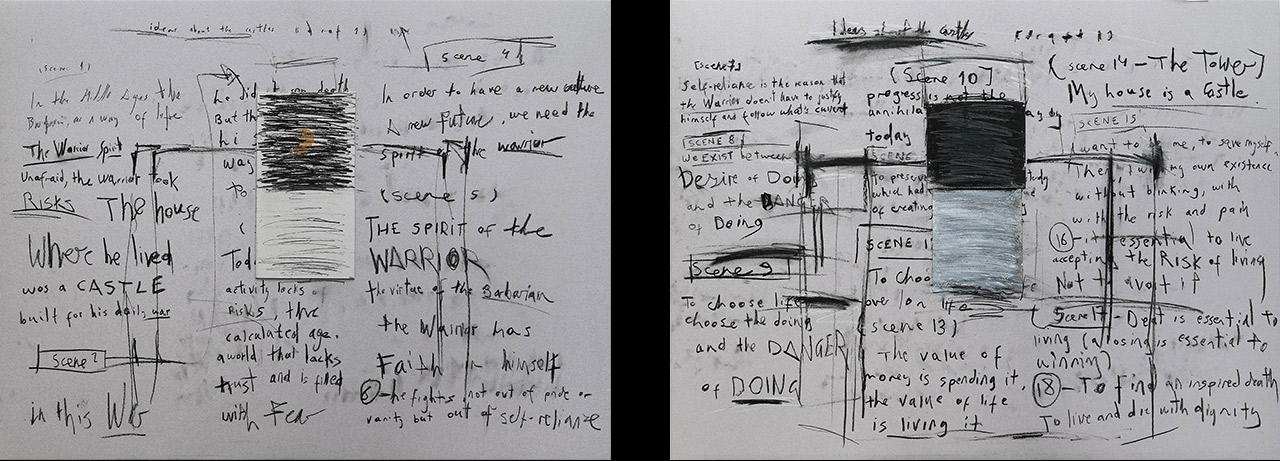 ideas about the castles draft 13
(scene 1)
In the Middle Ages the
Barbarian, as a way of life
The Warrior spirit
Unafraid, the warrior took
RISKS The house
Where he lived
was a CASTLE
built for his daily war
Scene 2
in this War
he did death
But th
hi
way
to
Tod
activity lacks of
risks, the
calculated age.
a world that lacks
trust and is filled
with Fear
scene 4
In order to have a new culture
A new Future, we need the
spirit of the warrior
(scene 5)
THE SPIRIT of the
WARRIOR
the virtue of the Barbarian
the Warrior has
Faith in himself
6 - he fights not out of pride or
vanity but out of self-reliance
Ideas about the castles Draft 13
[scene 7]
Self-reliance is the reason that
the Warrior doesn't have to justify
himself and follow what's current
[SCENE 8]
We EXIST between
Desire of Doing
and the DANGER
of Doing
Scene 9
To choose life
choose the doing
and the DANGER
of DOING
(Scene 10]
progress is not the
annihila
today
SCENE
To preserve
which had
of creating
SCENE 1
To choo
over life
(scene 13)
The value of
money is spending it,
the value of life
is living it
(scene 14 - The Tower)
My house is a Castle.
SCENE 15
I want to be me, to save myself
my own existence
without blinking, with
with the risk and pain
16 - it is essential to live
accepting the RISK of living
Not to avoid it
Scene 17 - Death is essential to
living (a losing is essential to
winning)
18 - To find an inspired death
To live and die with dignity